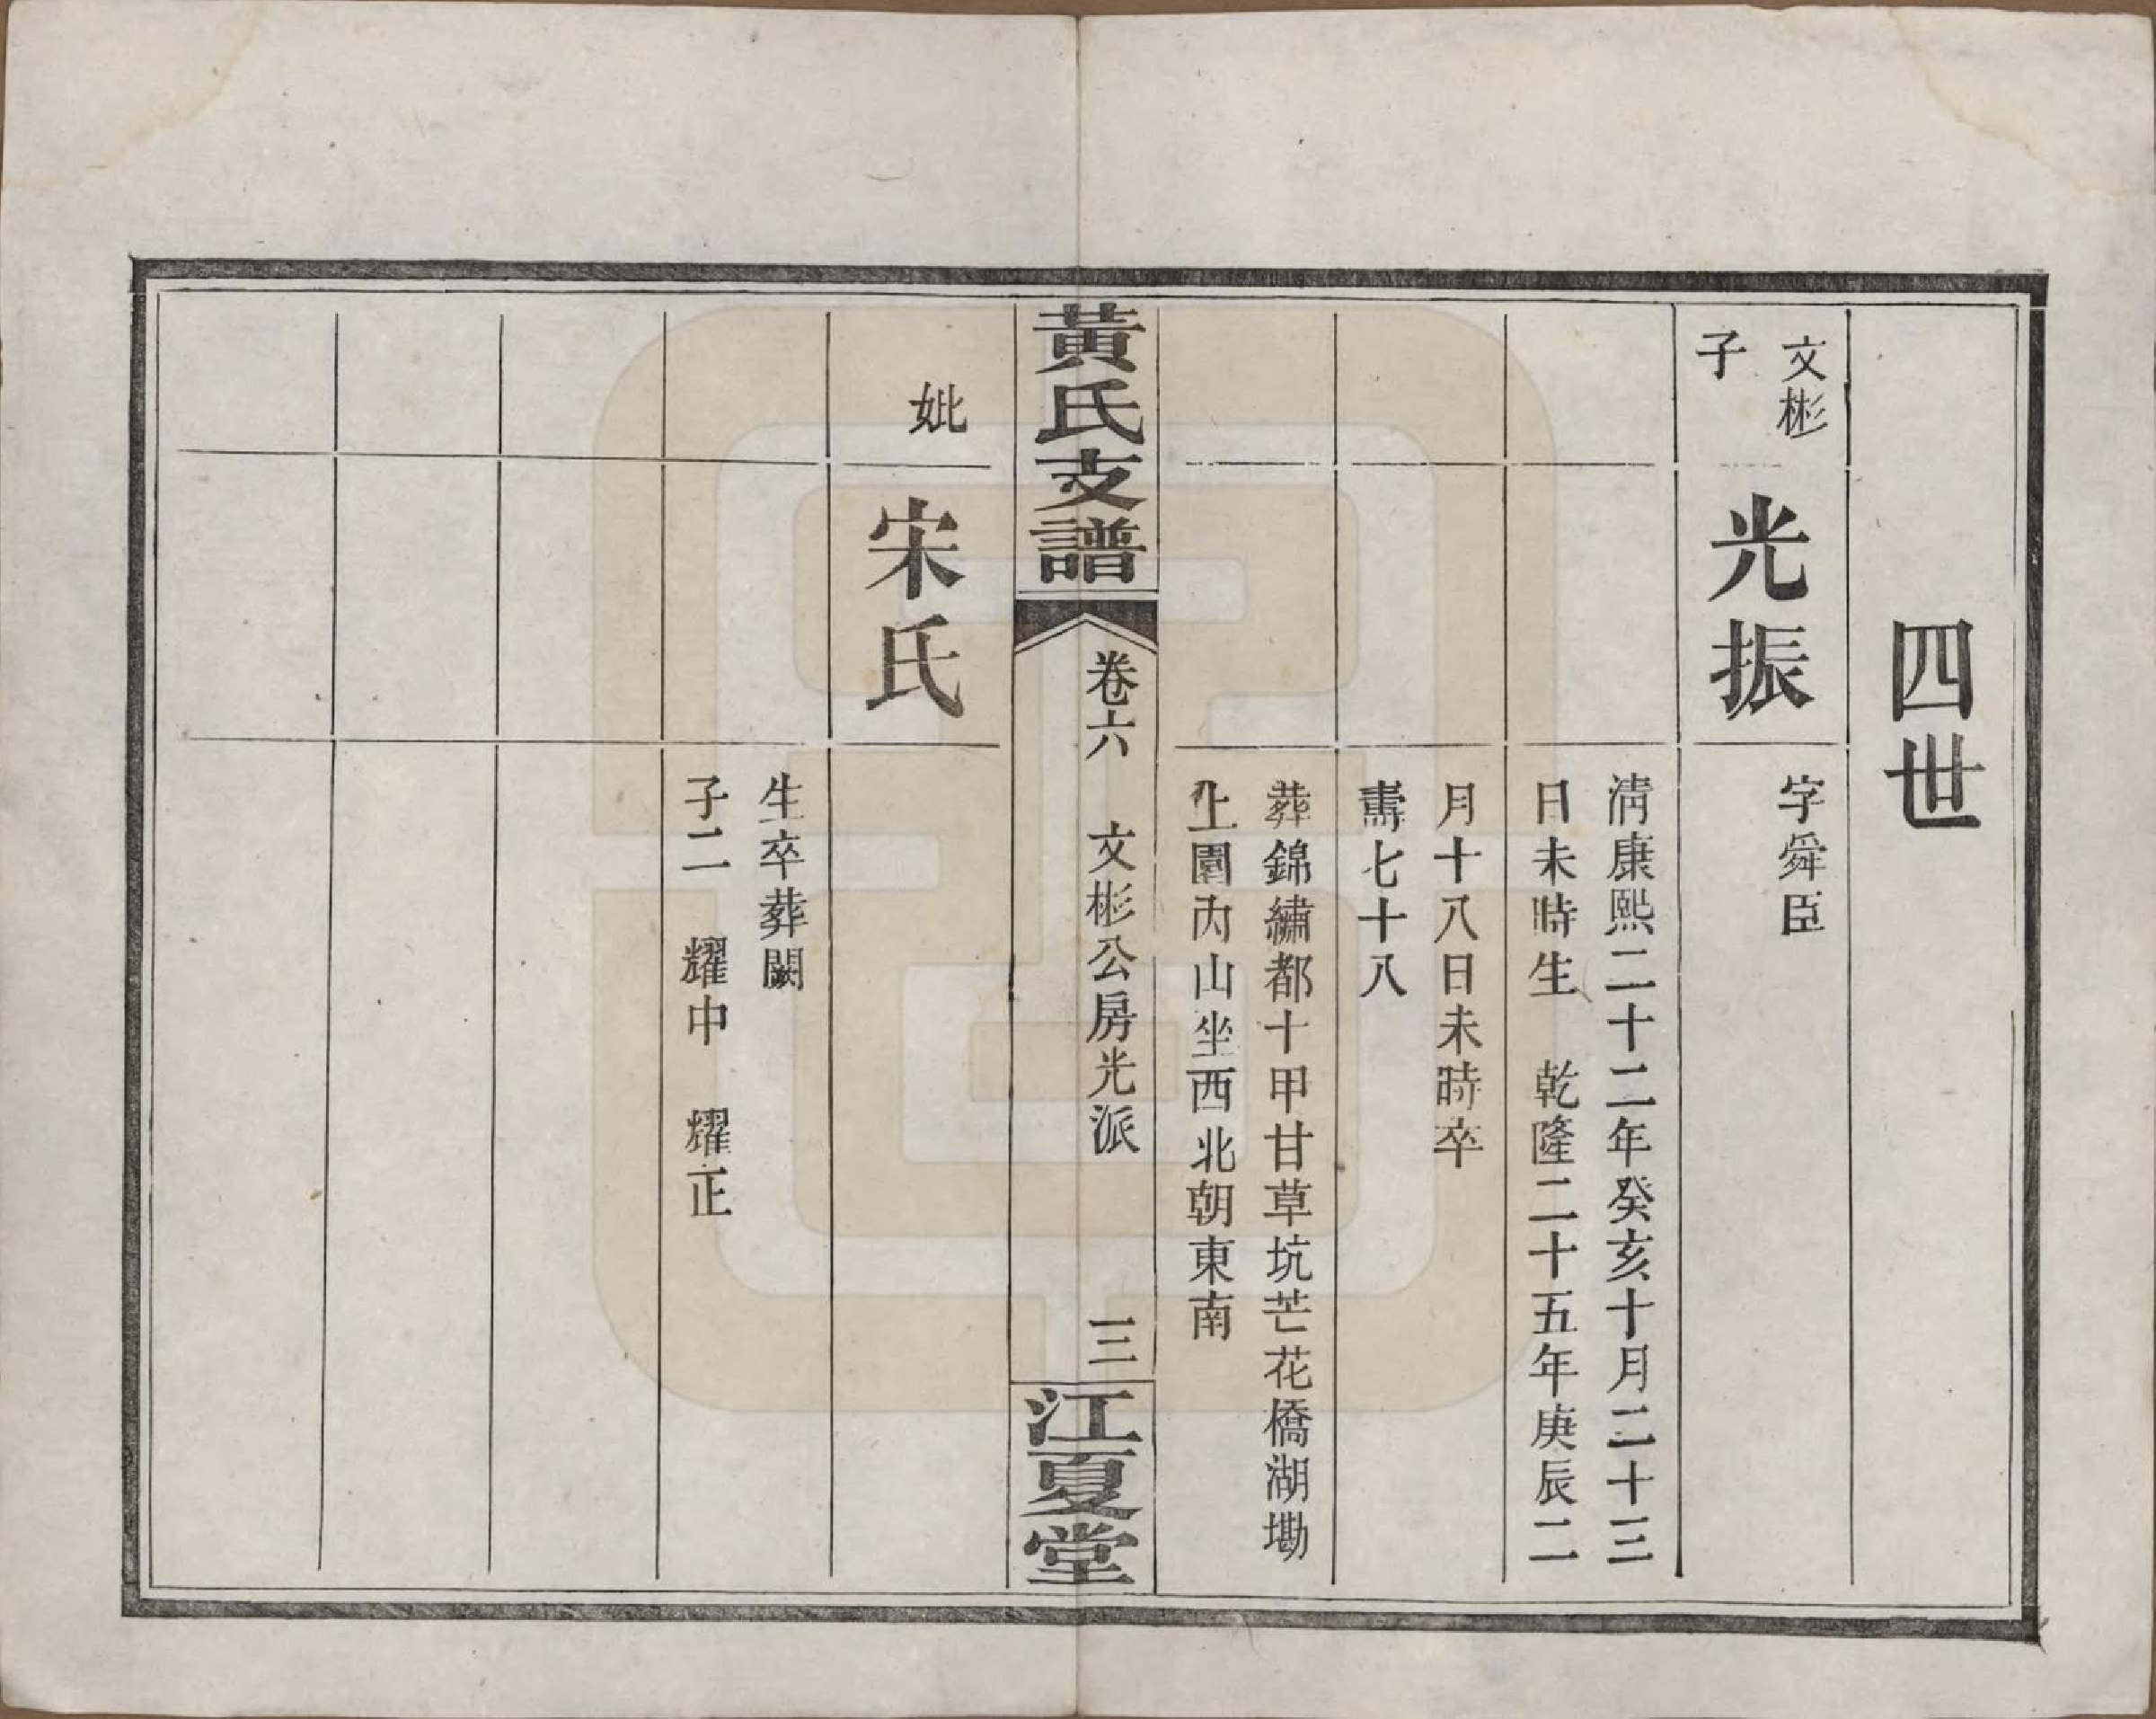 四世
文彬
子
光振
字舜臣
淸康熙二十二年癸亥十月二十三
日未時生　乾隆二十五年庚辰二
月十八日未時卒
壽七十八
葬錦繡都十甲甘草坑芒花橋湖墈
上園內山坐西北朝東南
黃氏支譜
卷六　文彬公房光派　三
江夏堂
妣
宋氏
生卒葬闕
子二　耀中　耀正